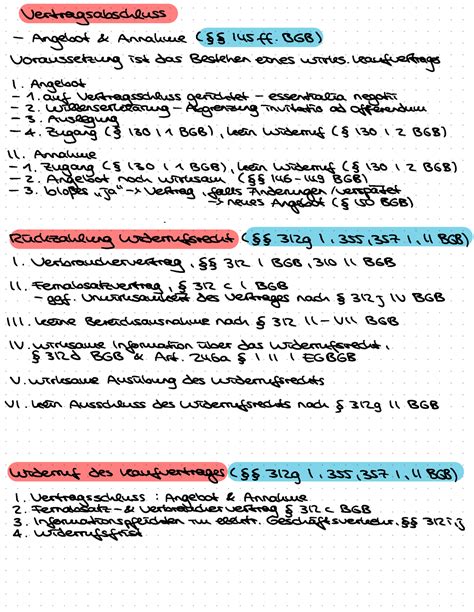 Vertragsabschluss
- Angebot & Annahme (§§ 145 ff. BGB)
Voraussetzung ist das Bestehen eines wirks. Kaufvertrags
I. Angebot
- 1. auf Vertragsschluss gerichtet - essentialia negotii
- 2. Willenserklärung - Abgrenzung invitatio ad offerendum
- 3. Auslegung
- 4. Zugang (§ 130 I 1 BGB), kein Widerruf (§ 130 I 2 BGB)
II. Annahme
- 1. Zugang (§ 130 I 1 BGB), kein Widerruf (§ 130 I 2 BGB)
- 2. Angebot noch wirksam (§§ 146-149 BGB)
- 3. bloßes „ja" -> Vertrag, falls Änderungen/verspätet
-> neues Angebot (§ 150 BGB)
Rückzahlung Widerrufsrecht (§§ 312g I, 355, 357 I, II BGB)
I. Verbrauchervertrag, §§ 312 I BGB, 310 II BGB
II. Fernabsatzvertrag, § 312 c I BGB
- ggf. Unwirksamkeit des Vertrages nach § 312j IV BGB
III. keine Bereichsausnahme nach § 312 II-VII BGB
IV. wirksame Information über das Widerrufsrecht,
§ 312d BGB & Art. 246a § 1 II 1 EGBGB
V. wirksame Ausübung des Widerrufsrechts
VI. kein Ausschluss des Widerrufsrechts nach § 312g II BGB
Widerruf des Kaufvertrages (§§ 312g I, 355, 357 I, II BGB)
1. Vertragsschluss: Angebot & Annahme
2. Fernabsatz- & Verbrauchervertrag § 312 c BGB
3. Informationspflichten im elektr. Geschäftsverkehr, §§ 312 i, j
4. Widerrufsfrist